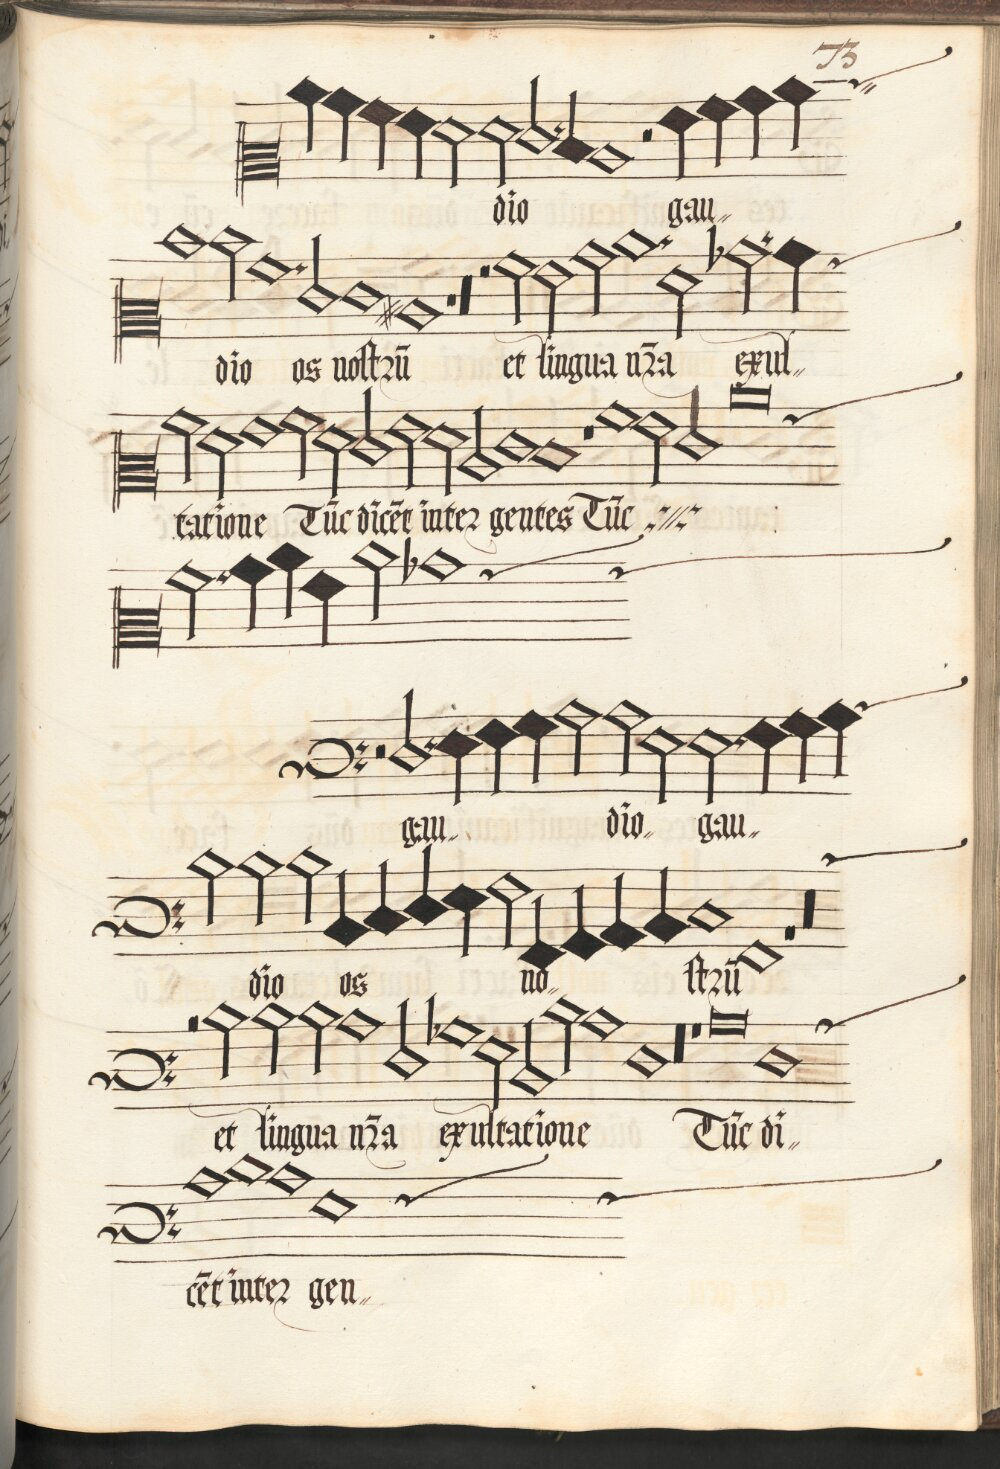 73
dio gau〃
dio os nostrū et lingua nr̄a exul〃
tatione Tūc dicēt inter gentes Tūc
gau〃 dio〃 gau〃
dio os no〃 strū
et lingua nr̄a exultatione Tūc di〃
cēt inter gen〃